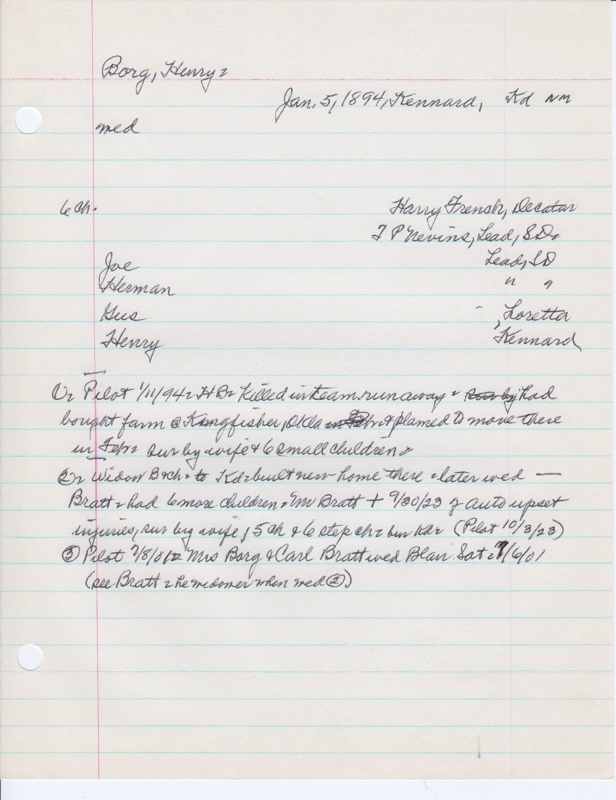 Borg, Henry =
Jan. 5, 1894, Kennard, Kd NM
med
6 ch.
Harry French, Decatur
T P Nevins, Lead, S.D.
Joe Lead, SD
Herman " "
Gus - Loretta
Henry , Kennard
①= Pilot 1/11/94 = HB = Killed in team runaway = had
bought farm @ Kingfisher, Okla & planned to move there
in Feb = sur by wife & 6 small children =
②= Widow B & ch = to Kd = built new home there = later wed —
Bratt = had 6 more children = Mr Bratt + 9/30/23 of auto upset
injuries, sur by wife, 5 ch & 6 step ch = bur Kd = (Pilot 10/3/23)
③ Pilot 7/8/01 = Mrs Borg & Carl Bratt wed Blair Sat = 7/6/01
(see Bratt = he widower when med ②)